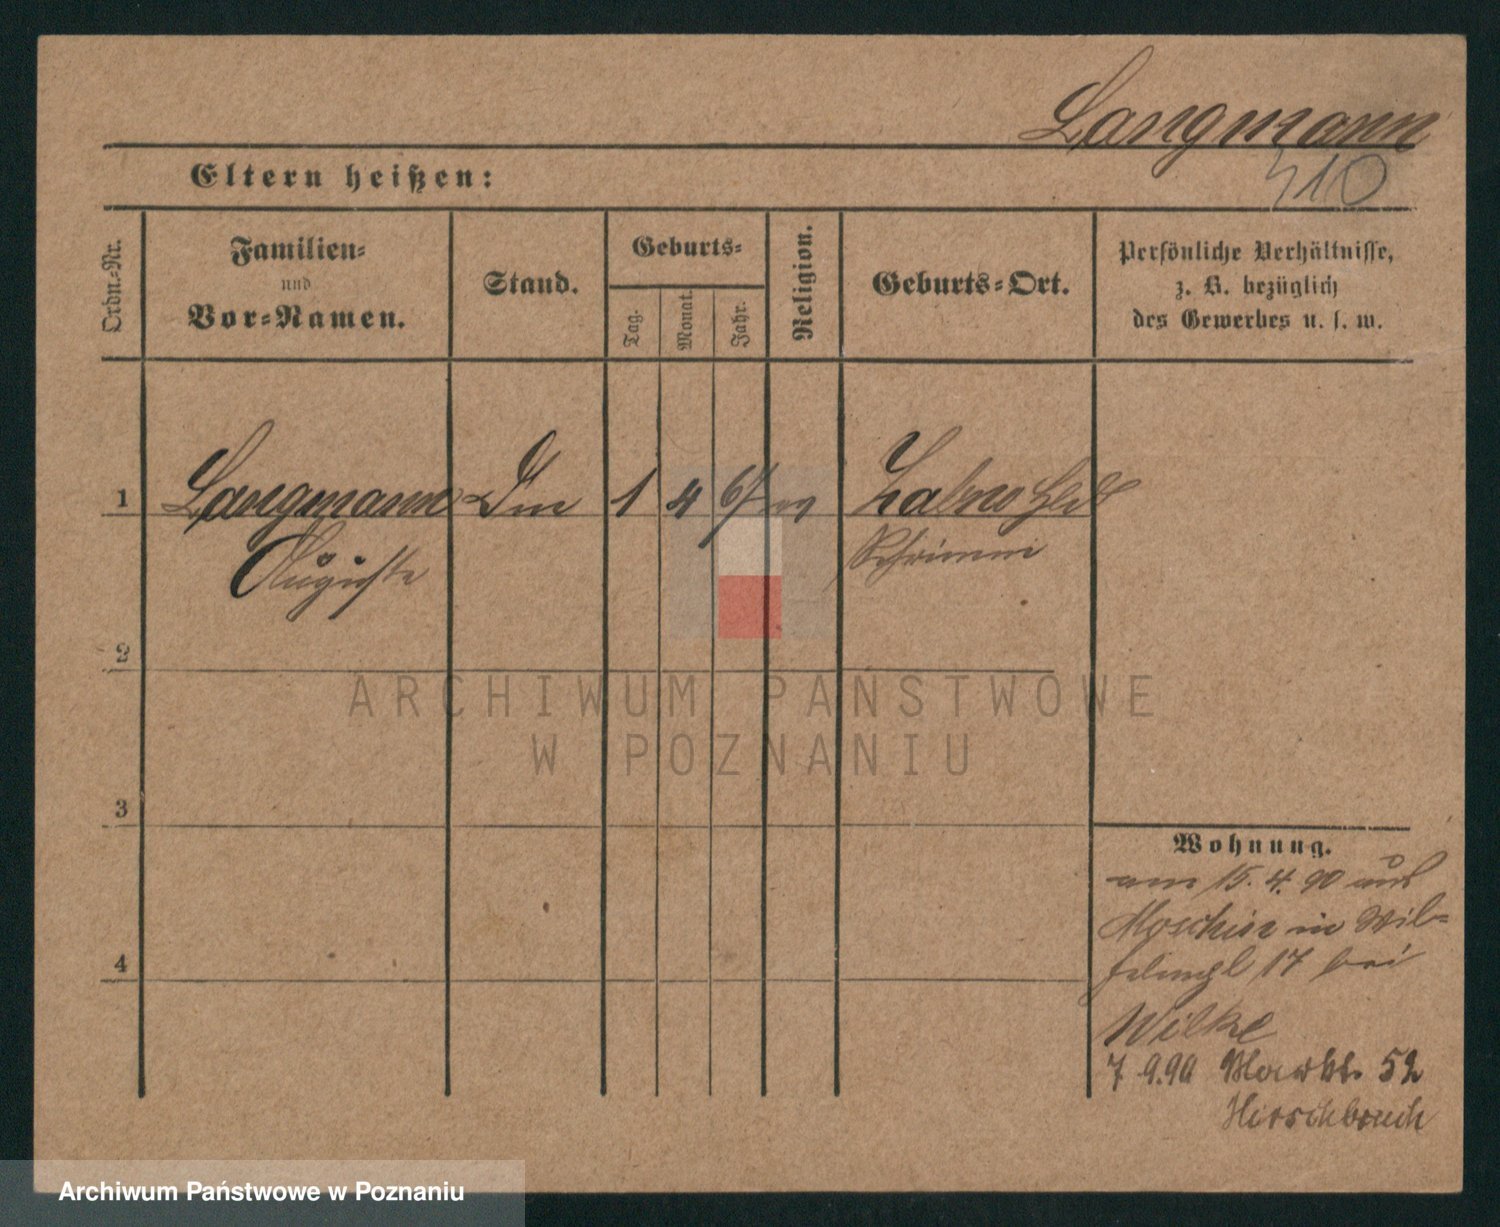 Langmann
410
Eltern heißen:
Ordn.-Nr.
Familien-
und
Vor-Namen.
Stand.
Geburts-
Tag.
Monat.
Jahr.
Religion.
Geburts-Ort.
Persönliche Verhältnisse,
z. B. bezüglich
des Gewerbes u. s. w.
1 Langmann 1 4 67
Auguste Schrimm
2
3
4
ARCHIWUM PAŃSTWOWE
W POZNANIU
Wohnung.
am 15.4.90 aus
Moschin in Wil-
17 bei
Wilke
7 9.90 Markt 52
Hirschbruch
Archiwum Państwowe w Poznaniu